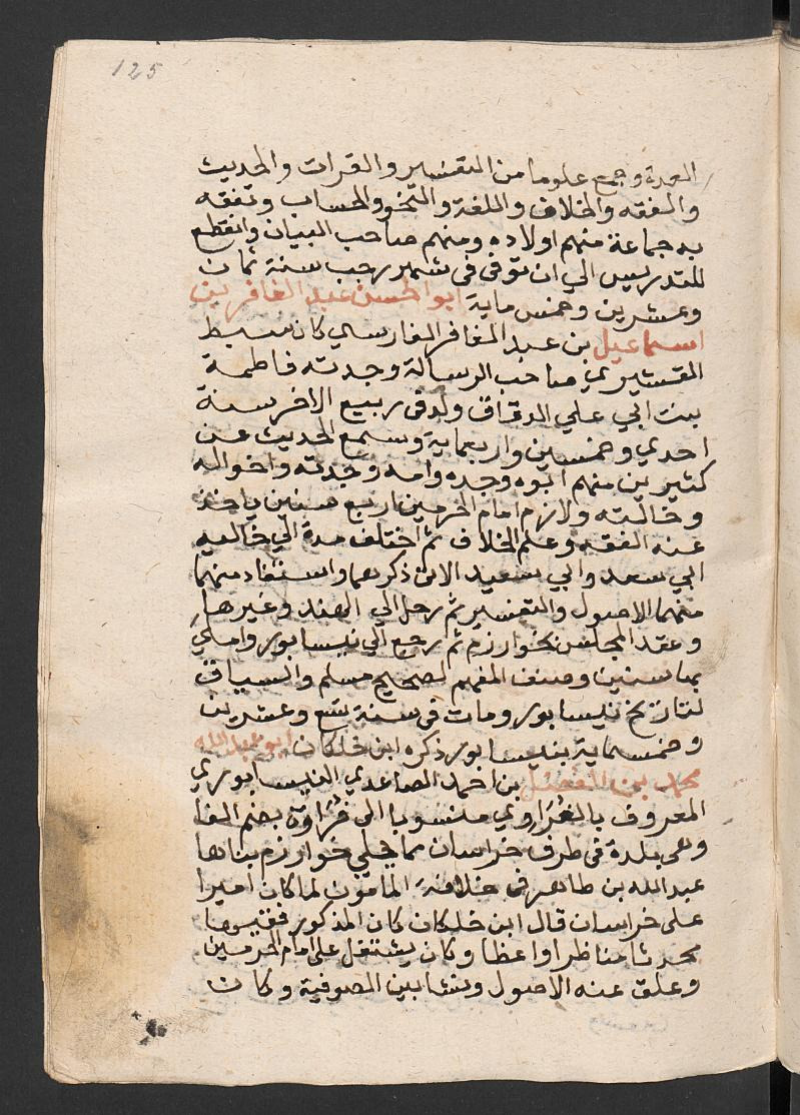 125
العدة وجمع علوما من التفسير والقرات والحديث
والفقه والخلاف واللغة والنحو والحساب وتفقه
به جماعة منهم اولاده ومنهم صاحب البيان وانقطع
للتدريس الي ان توفى فى شهر رجب سنة ثمان
وعشرين وخمس ماية ابو الحسن عبد الغافر بن
اسماعيل بن عبد الغافر الفارسي كان سبط
القشيري صاحب الرسالة وجدته فاطمة
بنت ابي علي الدقاق ولد فى ربيع الاخر سنة
احدي وخمسين واربعماية وسمع الحديث عن
كثيرين منهم ابوه وجده وامه وجدته واخواله
وخالته ولازم امام الحرمين اربع سنين ياخذ
عنه الفقه وعلم الخلاف ثم اختلف مدة الي خاليه
ابي سعد وابي سعيد الاتى ذكرهما واستفاد منهما
منهما الاصول والتفسير ثم رحل الي الهند وغيرها
وعقد المجلس بخوارزم ثم رجع الي نيسابور واملي
بها سنين وصنف المفهم لصحيح مسلم والسياق
لتاريخ نيسابور ومات فى سنة تسع وعشرين
وخمسماية بنيسابور ذكره ابن خلكان ابو عبد الله
محمد بن الفضل بن احمد الصاعدي النيسابوري
المعروف بالفُرَاروي منسوبا الى فُرَاوَة بضم الفا
وهى بلدة فى طرف خراسان مما يلي خوارزم بناها
عبد الله بن طاهر فى خلافة المامون لما كان اميرا
على خراسان قال ابن خلكان كان المذكور فقيها
محدثا مناظرا واعظا وكان يشتغل على امام الحرمين
وعلق عنه الاصول ونشا بين الصوفية وكان